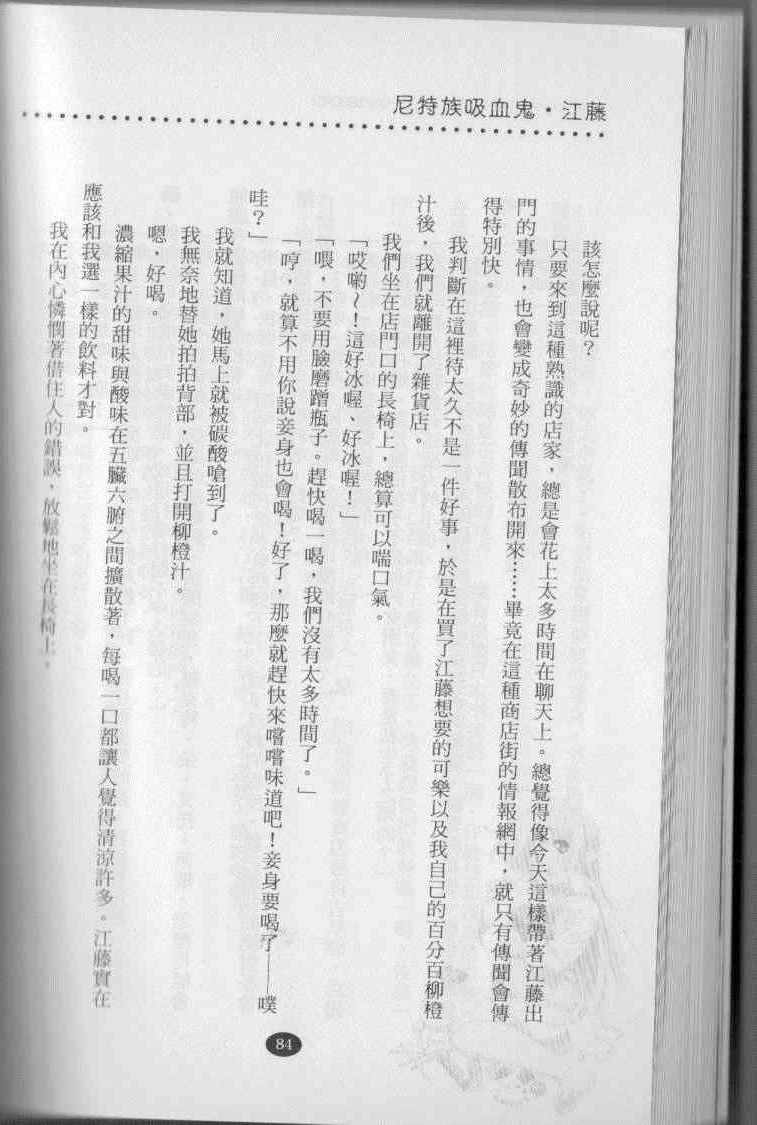 尼特族吸血鬼・江藤
該怎麼說呢？
只要來到這種熟識的店家，總是會花上太多時間在聊天上。總覺得像今天這樣帶著江藤出
門的事情，也會變成奇妙的傳聞散布開來……畢竟在這種商店街的情報網中，就只有傳聞會傳
得特別快。
我判斷在這裡待太久不是一件好事，於是在買了江藤想要的可樂以及我自己的百分百柳橙
汁後，我們就離開了雜貨店。
我們坐在店門口的長椅上，總算可以喘口氣。
「哎喲～！這好冰喔、好冰喔！」
「喂，不要用臉磨蹭瓶子。趕快喝一喝，我們沒有太多時間了。」
「哼，就算不用你說妾身也會喝！好了，那麼就趕快來嚐嚐味道吧！妾身要喝了——噗
哇？」
我就知道，她馬上就被碳酸嗆到了。
我無奈地替她拍拍背部，並且打開柳橙汁。
嗯，好喝。
濃縮果汁的甜味與酸味在五臟六腑之間擴散著，每喝一口都讓人覺得清涼許多。江藤實在
應該和我選一樣的飲料才對。
我在內心憐憫著借住人的錯誤，放鬆地坐在長椅上。
84